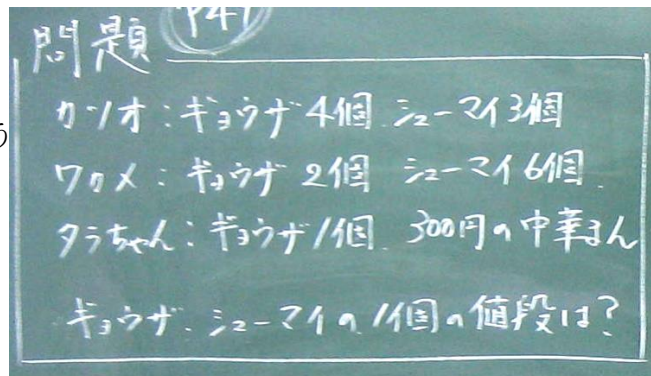 問題 P41
カツオ：ギョウザ4個 シューマイ3個
ワカメ：ギョウザ2個 シューマイ6個.
タラちゃん：ギョウザ1個. 300円の中華まん
ギョウザ. シューマイの1個の値段は？